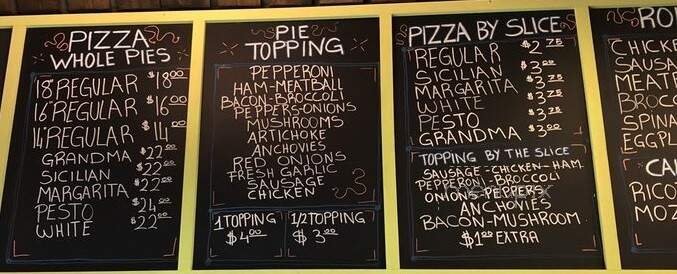 PIZZA
WHOLE PIES
18" REGULAR $18.00
16" REGULAR $16.00
14" REGULAR $14.00
GRANDMA $22.00
SICILIAN $22.00
MARGARITA $22.00
PESTO $24.00
WHITE $22.00
PIE
TOPPING
PEPPERONI
HAM-MEATBALL
BACON-BROCCOLI
PEPPERS-ONIONS
MUSHROOMS
ARTICHOKE
ANCHOVIES
RED ONIONS
FRESH GARLIC
SAUSAGE
CHICKEN
1 TOPPING
$4.00
1/2 TOPPING
$3.00
PIZZA BY SLICE
REGULAR $2.75
SICILIAN $3.00
MARGARITA $3.75
WHITE $3.75
PESTO $3.75
GRANDMA $3.00
TOPPING BY THE SLICE
SAUSAGE-CHICKEN-HAM
PEPPERONI-BROCCOLI
ONIONS-PEPPERS
ANCHOVIES
BACON-MUSHROOM
$1.00 EXTRA
RO
CHICKE
SAUSA
MEATB
BROCC
SPINA
EGGPL
CA
RICO
MOZ